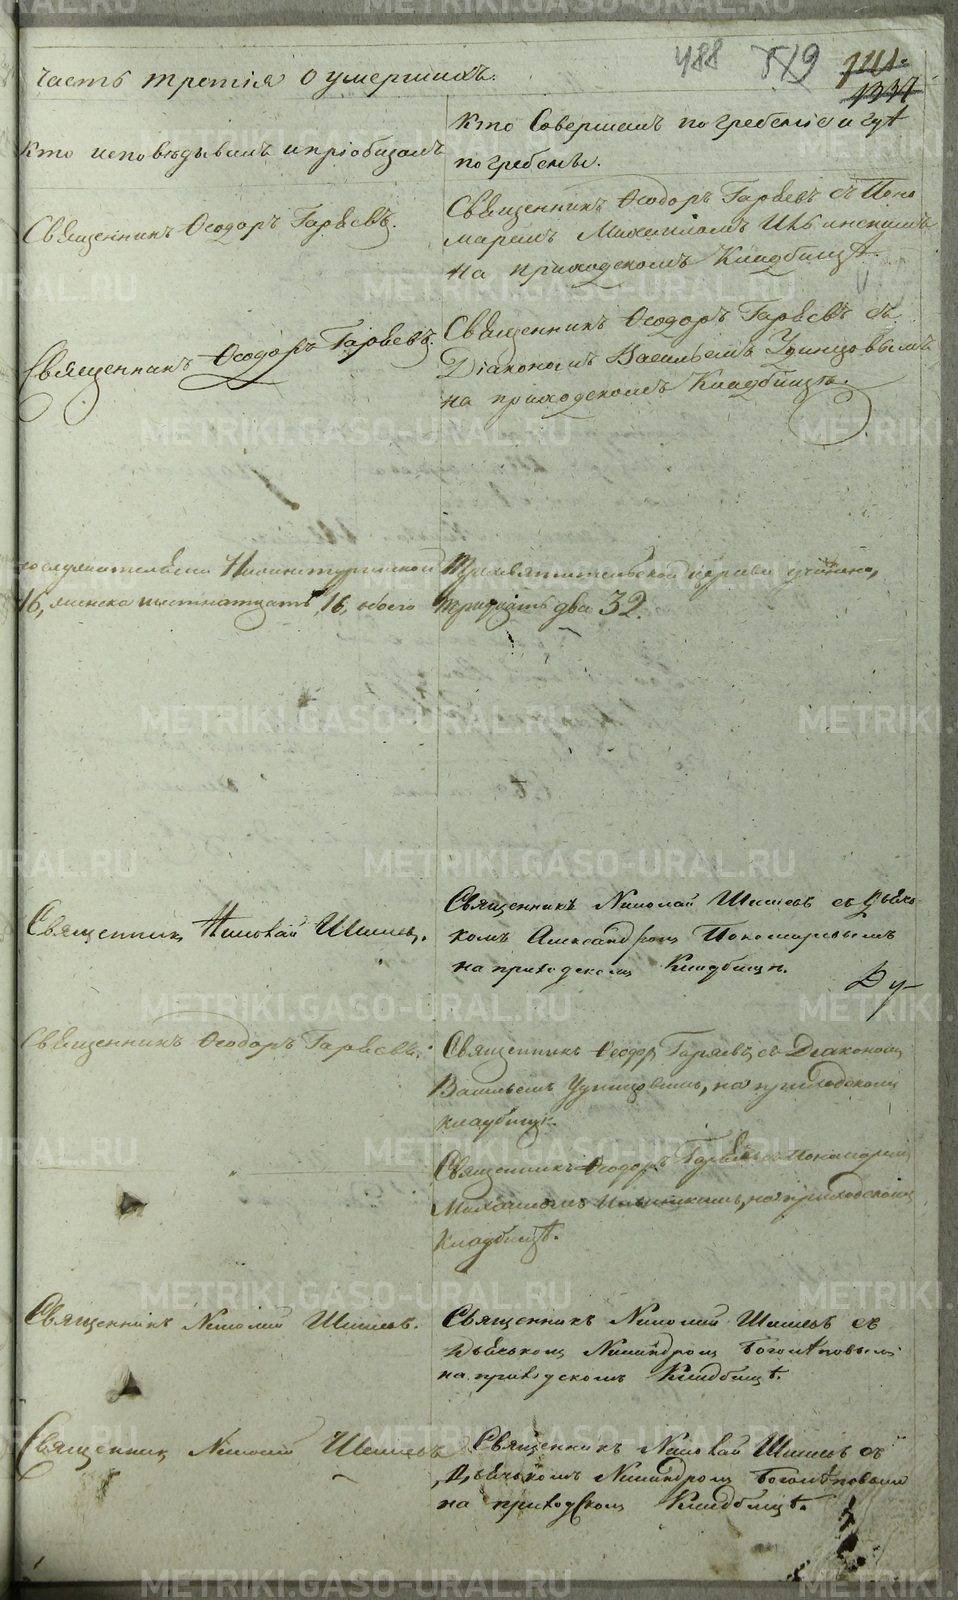 488 519
1337
часть третія о умершихъ.
Кто исповѣдывалъ и пріобщалъ
Кто Совершалъ погребеніе и гдѣ
погребены.
Священникъ Ѳеодоръ Гаряевъ.
Священникъ Ѳеодоръ Гаряевъ съ Поно
маремъ Михаиломъ
на приходскомъ Кладбищѣ.
Священникъ Ѳеодоръ Гаряевъ.
Священникъ Ѳеодоръ Гаряевъ съ
Діакономъ Васильемъ Удинцовымъ
на приходскомъ Кладбищѣ.
Нижнетуринской Трехсвятительской церкви учинено,
16, женска шестнатцать 16, обоего тридцать два 32.
Священникъ Николай Шишевъ.
Священникъ Николай Шишевъ съ Дьяч
комъ Александромъ Пономаревымъ
на приходскомъ Кладбищѣ.
Ду
Священникъ Ѳеодоръ Гаряевъ.
Священникъ Ѳеодоръ Гаряевъ съ Діакономъ
Васильемъ Удинцовымъ, на приходскомъ
кладбищѣ.
Священникъ Ѳеодоръ Гаряевъ съ Пономаремъ
Михаиломъ на приходскомъ
Кладбищѣ.
Священникъ Николай Шишевъ.
Священникъ Николай Шишевъ съ
Дьячкомъ Никандромъ Боголѣповымъ
на приходскомъ Кладбищѣ.
Священникъ Николай Шишевъ
Священникъ Николай Шишевъ съ
Дьячкомъ Никандромъ Боголѣповымъ
на приходскомъ Кладбищѣ.
METRIKI.GASO-URAL.RU